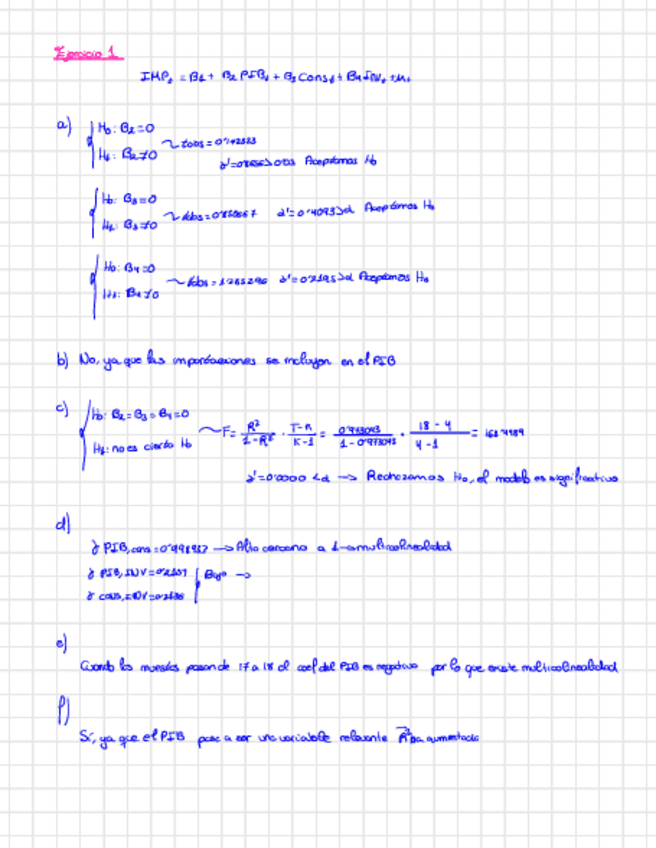 Ejercicio 1
IMPt = B1 + B2 PIBt + B3 Const + B4 INVt + ut
a) H0: B2=0
H1: B2≠0 ~ tobs = 0'142383
Aceptamos H0
H0: B3=0
H1: B3≠0 ~ tobs = α'=0'4093>α Aceptamos H0
H0: B4=0
H1: B4≠0 ~ tobs = 1'285296 α'=0'2195>α Aceptamos H0
b) No, ya que las importaciones se incluyen en el PIB
c) H0: B2=B3=B4=0
H1: no es cierto H0 ~ F = R²/1-R² · T-k/k-1 = 0'973043/1-0'973043 · 18-4/4-1 = 168'4489
α'=0'0000 <α → Rechazamos H0, el modelo es significativo
d)
γ PIB,cons = → Alto cercano a 1 → multicolinealidad
γ PIB,INV = Bajo →
γ cons,INV =
e)
Cuando las muestras pasan de 17 a 18 el coef del PIB es negativo por lo que existe multicolinealidad
f)
Sí, ya que el PIB pasa a ser una variable relevante R² ha aumentado